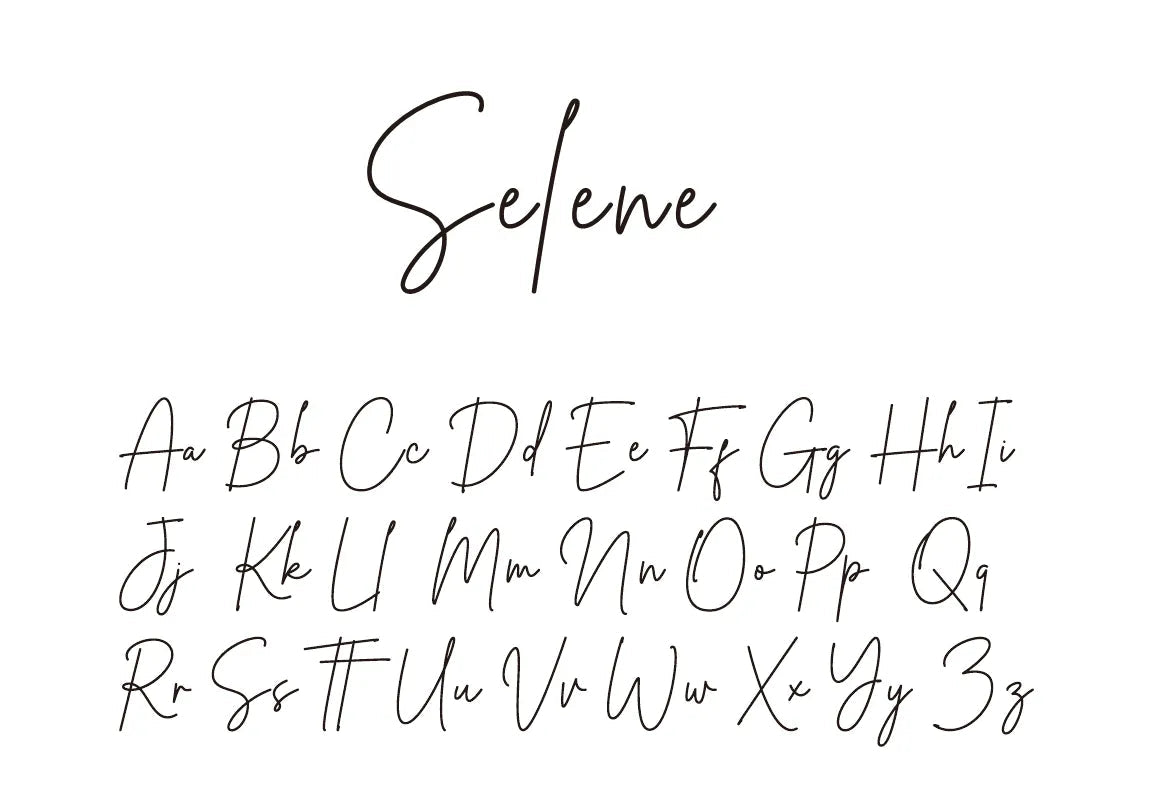 Selene
Aa Bb Cc Dd Ee Ff Gg Hh Ii
Jj Kk Ll Mm Nn Oo Pp Qq
Rr Ss Tt Uu Vv Ww Xx Yy Zz